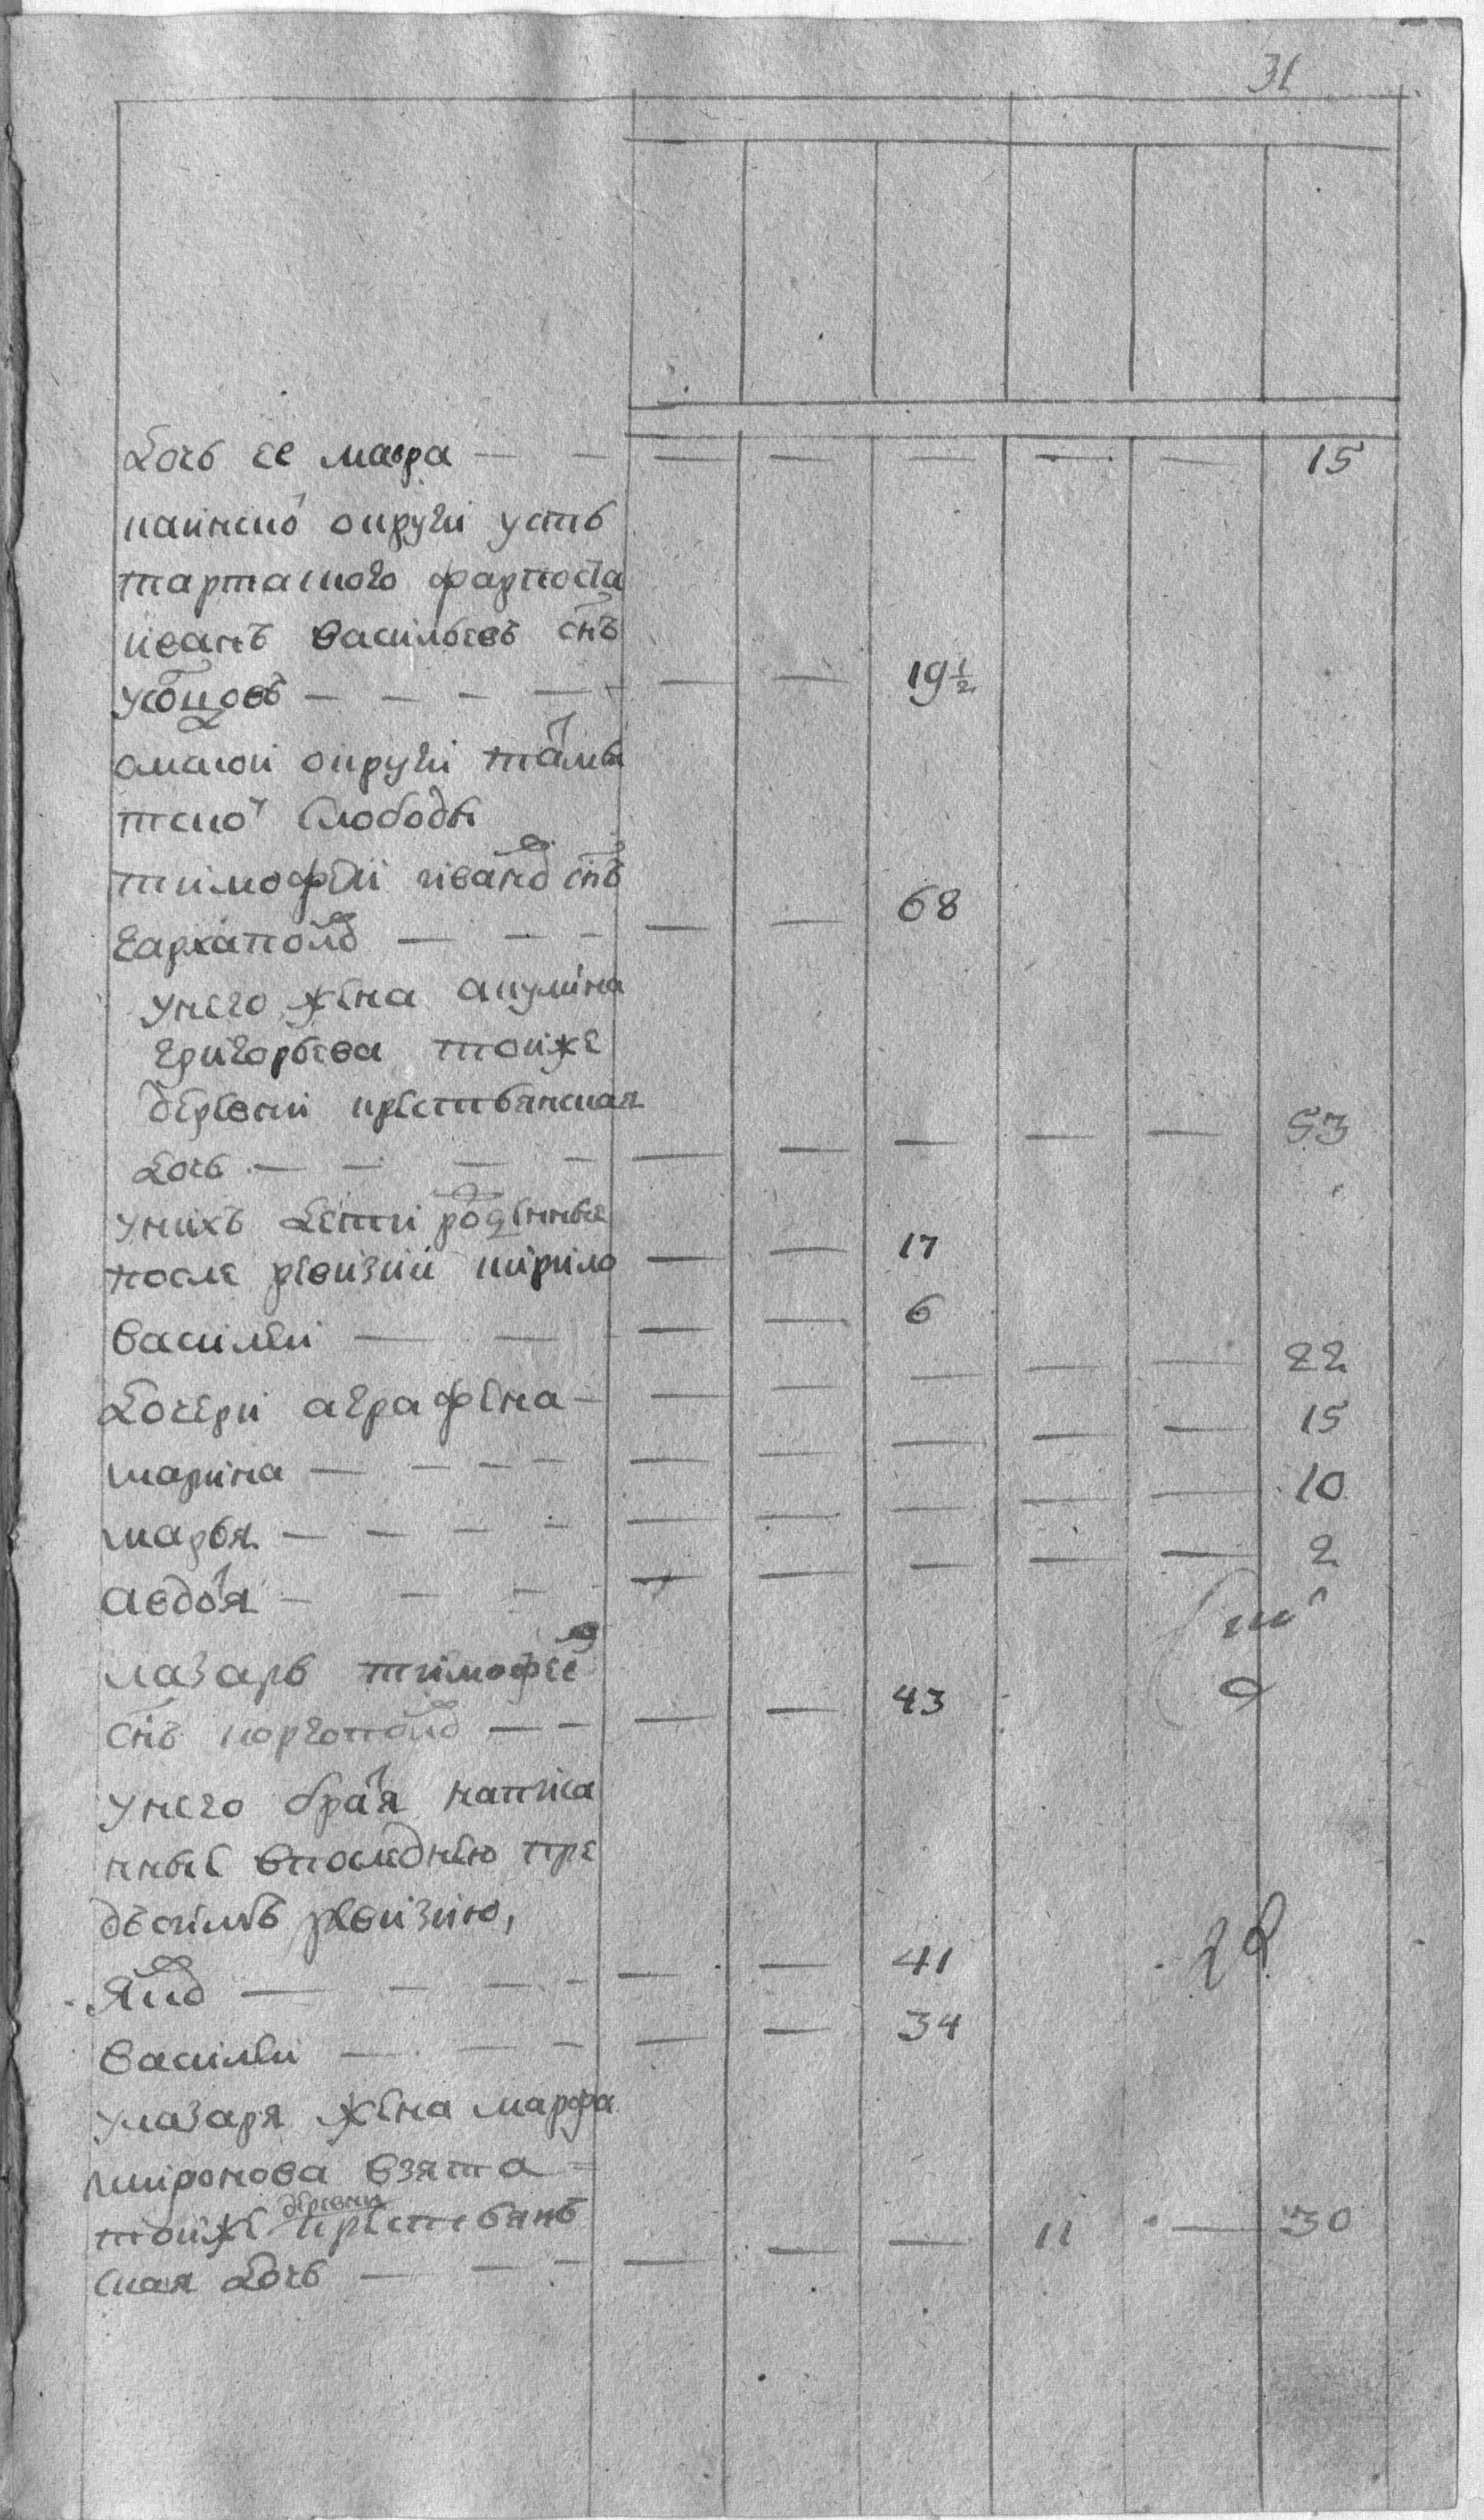 31
Дочь ее мавра — — — — — — — 15
каинской округи усть
тартаского фарпоста
иванъ васильевъ снъ
усолцовъ — — — — — — 19 1/2
омской округи
тской слободы
тимофеи ивановъ снъ
каргаполовъ — — — — — 68
унего жена акулина
григорьева тойже
деревни крестьянская
дочь — — — — — — — — — 53
унихъ дети рожденные
после ревизии кирило — — 17
василеи — — — — 6
Дочери аграфена — — — — — — 22
марина — — — — — — — — — 15
марья — — — — — — — — — 10
авдотя — — — — — — — — 2
лазарь тимофеевъ
снъ коргополовъ — — — — 43
унего братья написа
нные впоследнею пре
дъ симъ ревизию,
яковъ — — — — — — 41
василеи — — — — — 34
улазаря жена марфа
миронова взята
тойже деревни крестьянъ
ская дочь — — — — — — 11 — 30
28